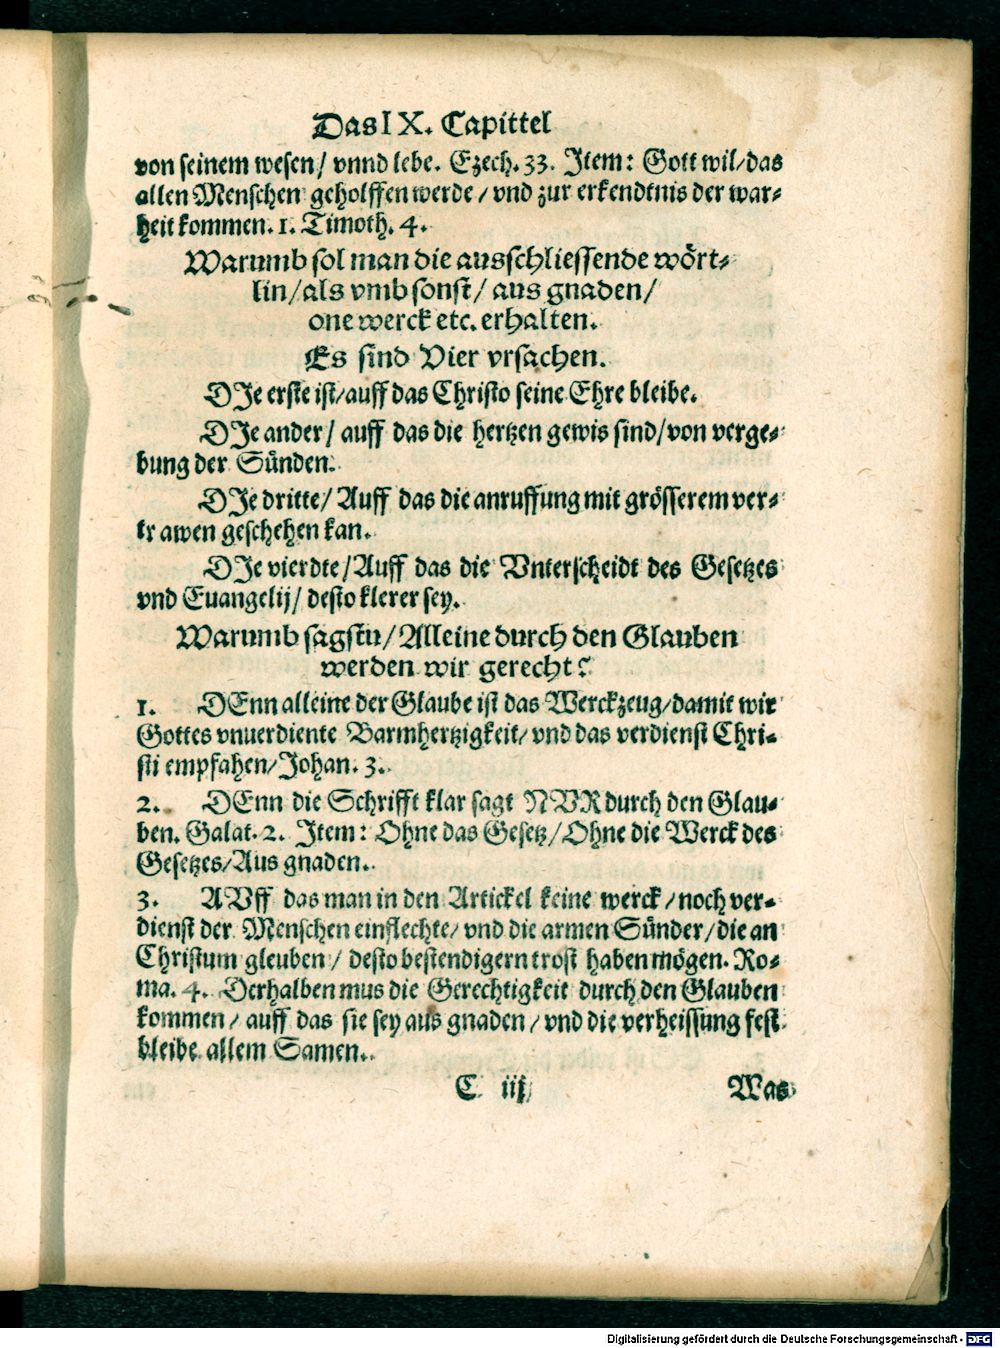 Das IX. Capittel
von seinem wesen/ vnnd lebe. Ezech. 33. Item: Gott wil/das
allen Menschen geholffen werde/vnd zur erkendtnis der war-
heit kommen. 1. Timoth. 4.
Warumb sol man die ausschliessende wört-
lin/als vmb sonst/ aus gnaden/
one werck etc. erhalten.
Es sind Vier vrsachen.
DIe erste ist/auff das Christo seine Ehre bleibe.
DIe ander/ auff das die hertzen gewis sind/von verge-
bung der Sünden.
DIe dritte/ Auff das die anruffung mit grösserem ver-
trawen geschehen kan.
DIe vierdte/Auff das die Vnterscheidt des Gesetzes
vnd Euangelij/ desto klerer sey.
Warumb sagstu/Alleine durch den Glauben
werden wir gerecht?
1. DEnn alleine der Glaube ist das Werckzeug/damit wir
Gottes vnuerdiente Barmhertzigkeit/vnd das verdienst Chri-
sti empfahen/Johan. 3.
2. DEnn die Schrifft klar sagt NVR durch den Glau-
ben. Galat. 2. Item: Ohne das Gesetz/Ohne die Werck des
Gesetzes/Aus gnaden.
3. AVff das man in den Artickel keine werck/noch ver-
dienst der Menschen einflechte/ vnd die armen Sünder/die an
Christum gleuben/ desto bestendigern trost haben mögen. Ro-
ma. 4. Derhalben mus die Gerechtigkeit durch den Glauben
kommen/ auff das sie sey aus gnaden/vnd die verheissung fest
bleibe allem Samen.
C iij
Was
Digitalisierung gefördert durch die Deutsche Forschungsgemeinschaft - DFG